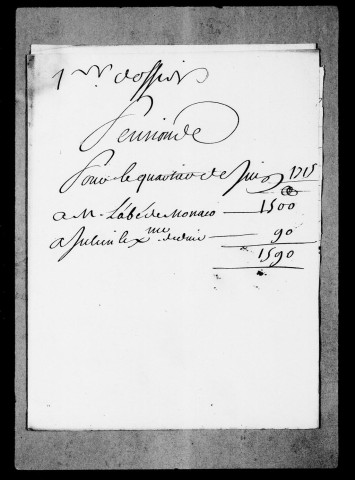 1er dossier
Pension de
Pour le quartier de Juin 1715
a Mr L'abé de Monaco — 1500
a Julien le Xme — 90
1590